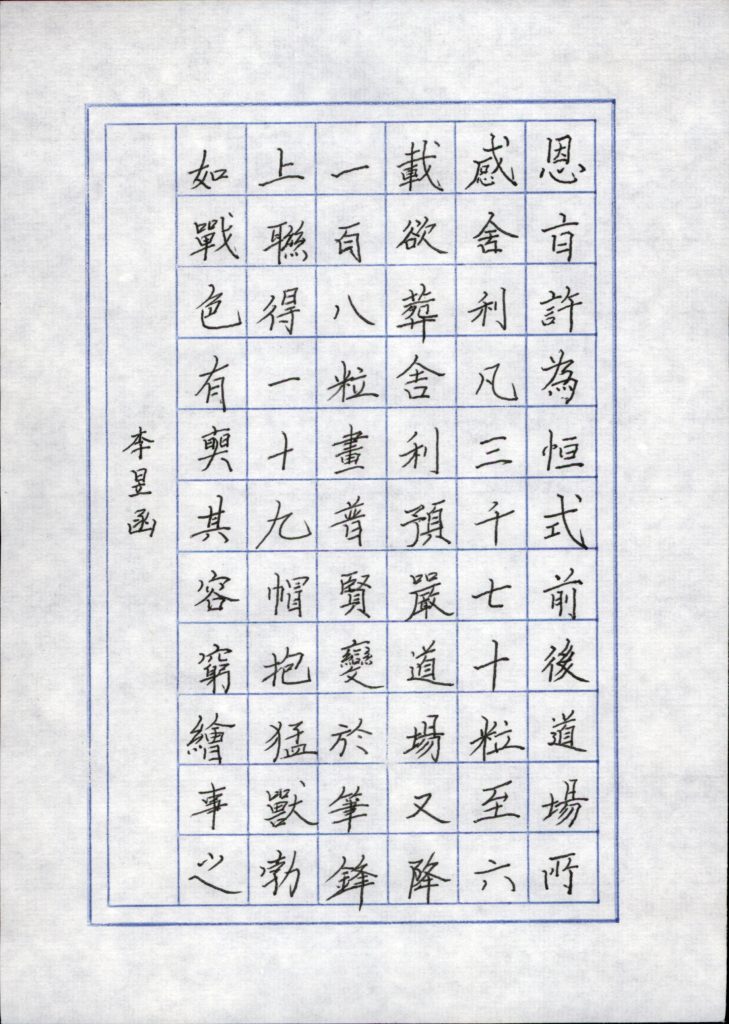 恩旨許為恒式前後道場所
感舍利凡三千七十粒至六
載欲葬舍利預嚴道場又降
一百八粒畫普賢變於筆鋒
上聯得一十九帽抱猛獸勃
如戰色有奭其容窮繪事之
李昱函